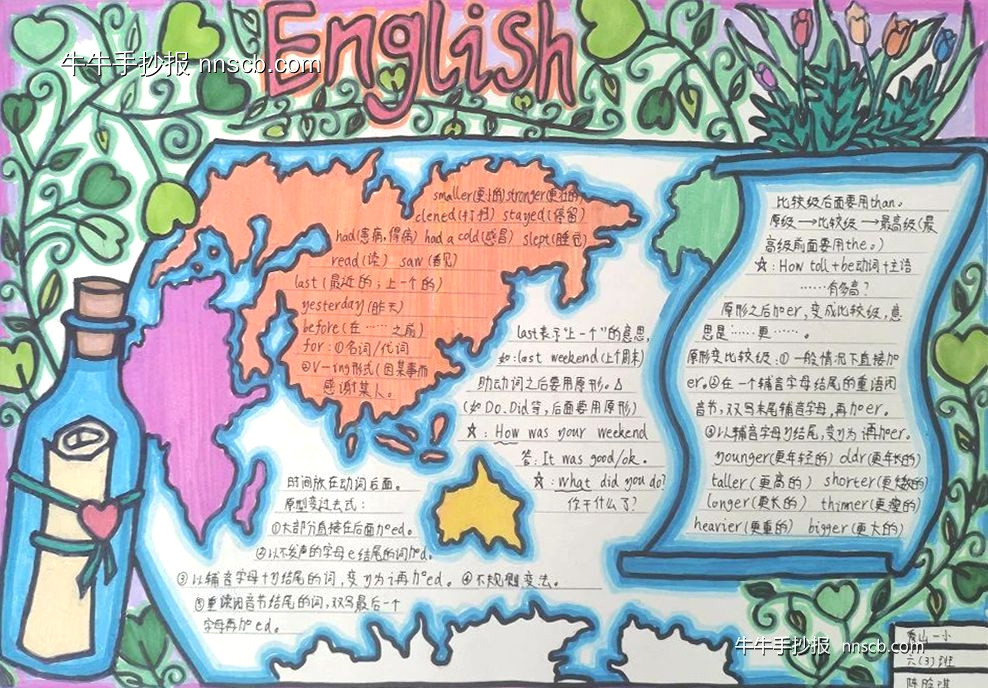 English
牛牛手抄报 nnscb.com
smaller(更小的)stronger(更壮的)
clened(打扫) stayed(停留)
had(患病,得病) had a cold(感冒) slept(睡觉)
read(读) saw(看见)
last(最近的;上一个的)
yesterday(昨天)
before(在……之前)
for:①名词/代词
②V-ing形式(因某事而
感谢某人。
last表示"上一个"的意思,
如:last weekend(上个周末)
助动词之后要用原形。△
(如Do、Did等,后面要用原形)
☆:How was your weekend
答:It was good/ok.
☆:What did you do?
你干什么了?
时间放在动词后面。
原型变过去式:
①大部分直接在后面加ed。
②以不发声的字母e结尾的词加d。
③以辅音字母+y结尾的词,变y为i再加ed。④不规则变法。
⑤重读闭音节结尾的词,双写最后一个
字母再加ed。
比较级后面要用than。
原级→比较级→最高级(最
高级前面要用the。)
☆:How tall+be动词+主语
……有多高?
原形之后加er,变成比较级,意
思是……更……。
原形变比较级:①一般情况下直接加
er。②在一个辅音字母结尾的重语闭
音节,双写末尾辅音字母,再加er。
③以辅音字母y结尾,变y为i再加er。
younger(更年轻的) oldr(更年长的)
taller(更高的) shorter(更矮的)
longer(更长的) thinner(更瘦的)
heavier(更重的) bigger(更大的)
牛牛手抄报 nnscb.com
山一小
六(3)班
陈